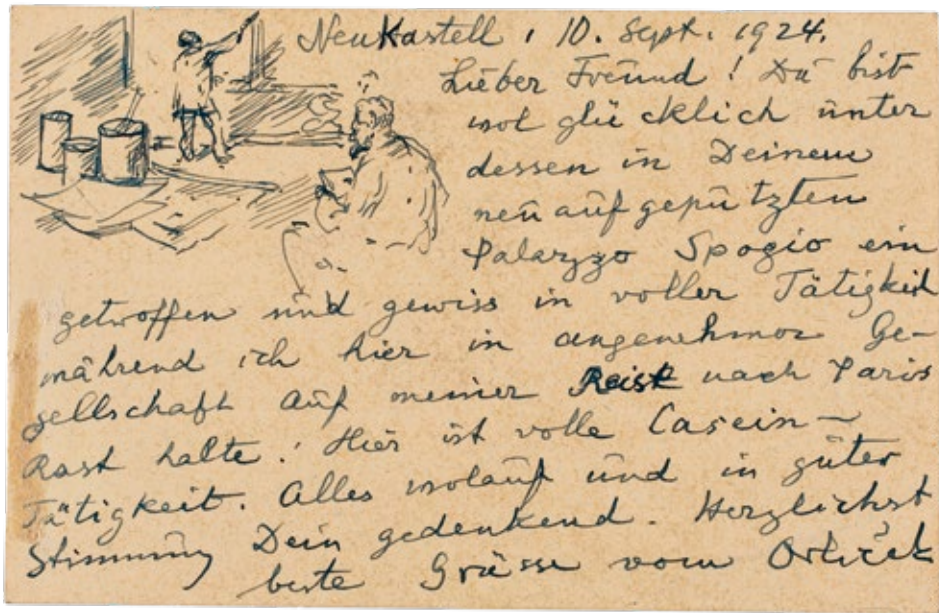 Neukastell, 10. Sept. 1924.
Lieber Freund! Du bist
wol glücklich unter
dessen in Deinem
neu aufgeputzten
Palazzo Spogio ein
getroffen und gewiss in voller Tätigkeit
während ich hier in angenehmer Ge-
sellschaft auf meiner Reise nach Paris
Rast halte. Hier ist volle Casein-
Tätigkeit. Alles wolauf und in guter
Stimmung Dein gedenkend. Herzlichst
beste Grüsse vom Orlicek